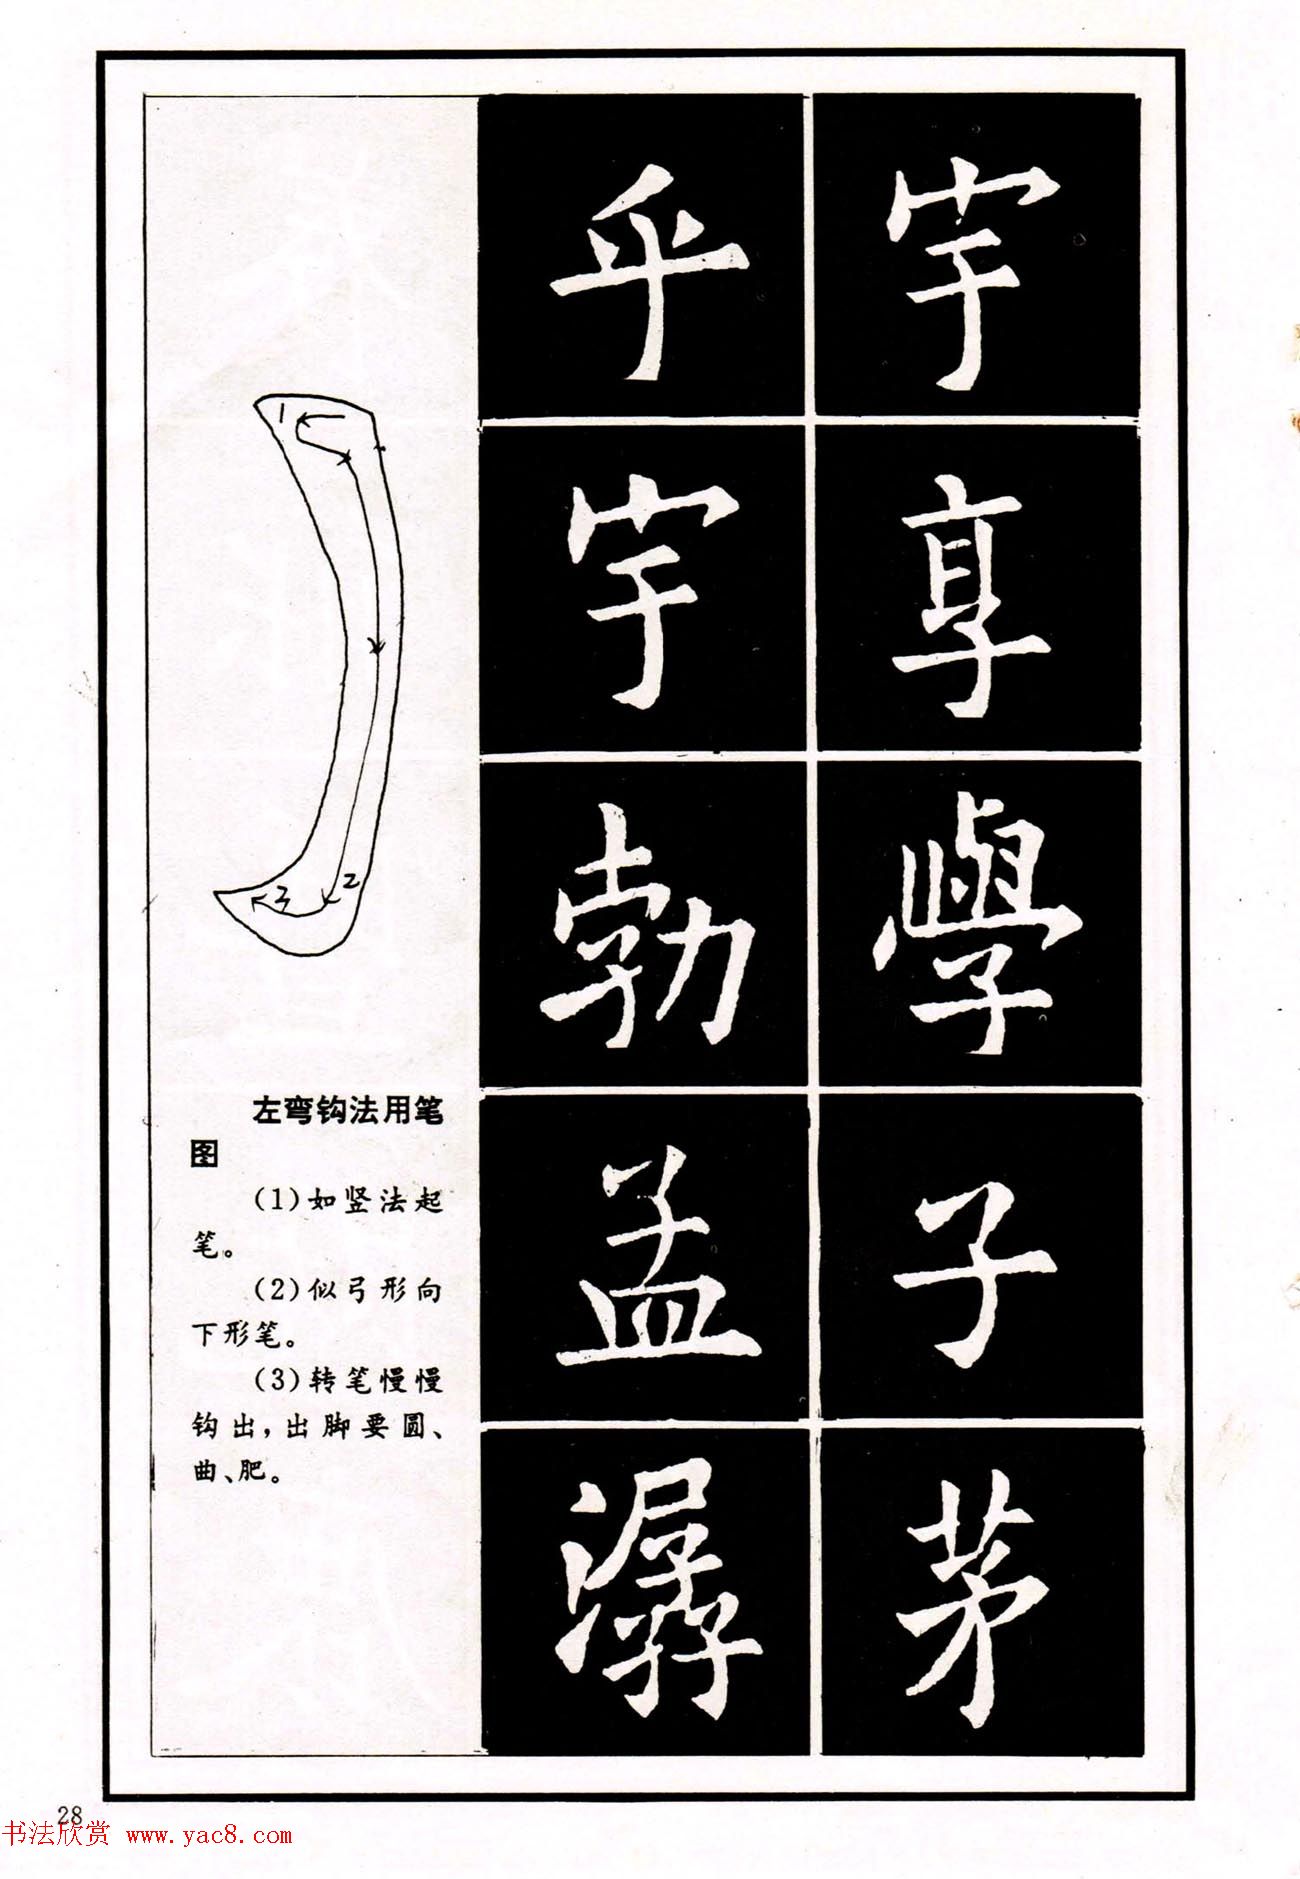 宇
享
學
子
茅
乎
宇
勃
孟
潺
1
2
3
左弯钩法用笔
图
(1)如竖法起
笔。
(2)似弓形向
下形笔。
(3)转笔慢慢
钩出，出脚要圆、
曲、肥。
28
书法欣赏 www.yac8.com